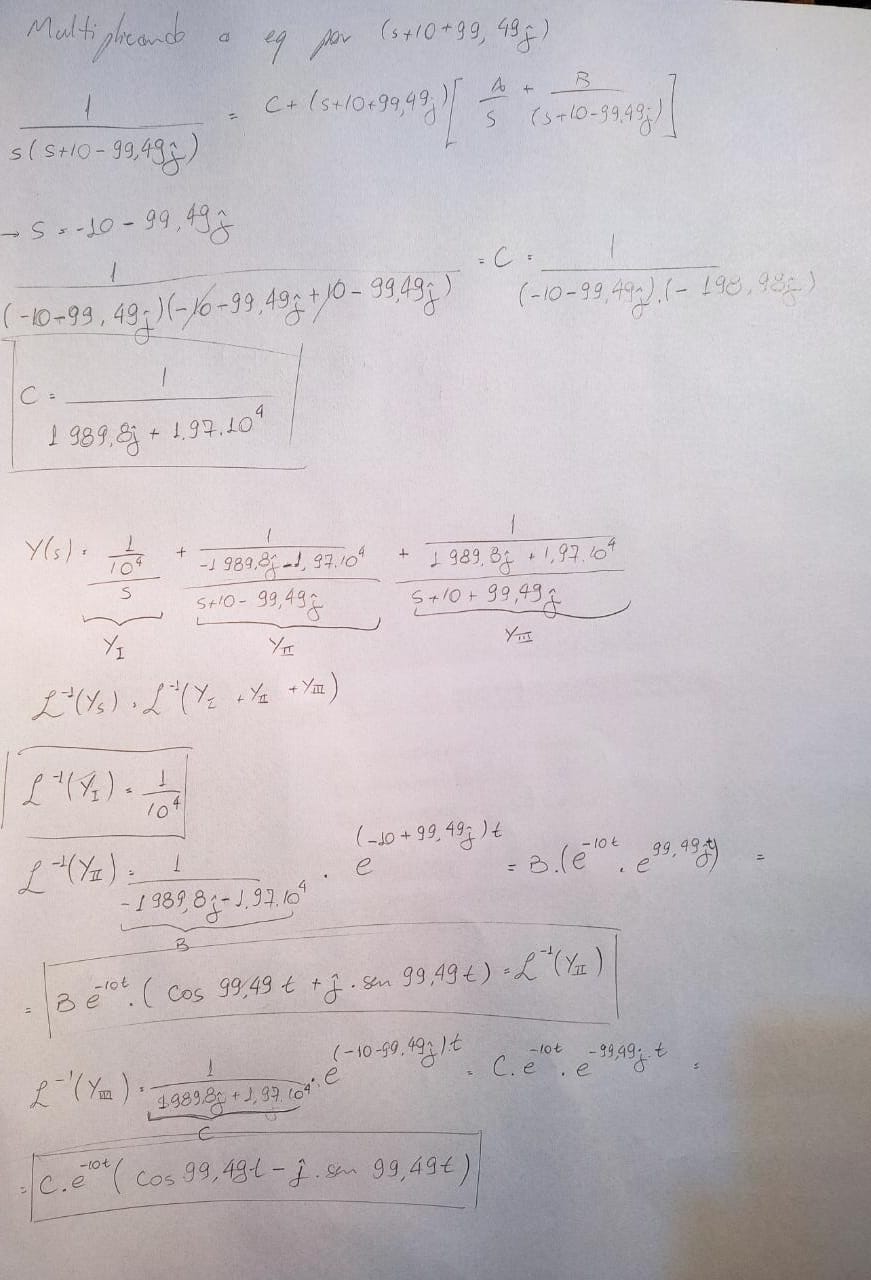 Multiplicando a eq por (s+10+99,49j)
1/(s(s+10-99,49j)) = C + (s+10+99,49j)[A/s + B/(s+10-99,49j)]
→ s = -10 - 99,49j
1/((-10-99,49j)(-10-99,49j+10-99,49j)) = C = 1/((-10-99,49j).(-198,98j))
C = 1/(1989,8j + 1,97.10⁴)
Y(s) = (1/10⁴)/s + (1/(-1989,8j-1,97.10⁴))/(s+10-99,49j) + (1/(1989,8j+1,97.10⁴))/(s+10+99,49j)
Y_I Y_II Y_III
ℒ⁻¹(Y_s) = ℒ⁻¹(Y_I + Y_II + Y_III)
ℒ⁻¹(Y_I) = 1/10⁴
ℒ⁻¹(Y_II) = 1/(-1989,8j-1,97.10⁴) . e^((-10+99,49j)t) = B.(e^(-10t) . e^(99,49jt)) =
B
= B e^(-10t) . (cos 99,49t + j . sen 99,49t) = ℒ⁻¹(Y_II)
ℒ⁻¹(Y_III) = 1/(1989,8j+1,97.10⁴) . e^((-10-99,49j)t) = C.e^(-10t) . e^(-99,49j.t) =
C
= C.e^(-10t) (cos 99,49t - j . sen 99,49t)